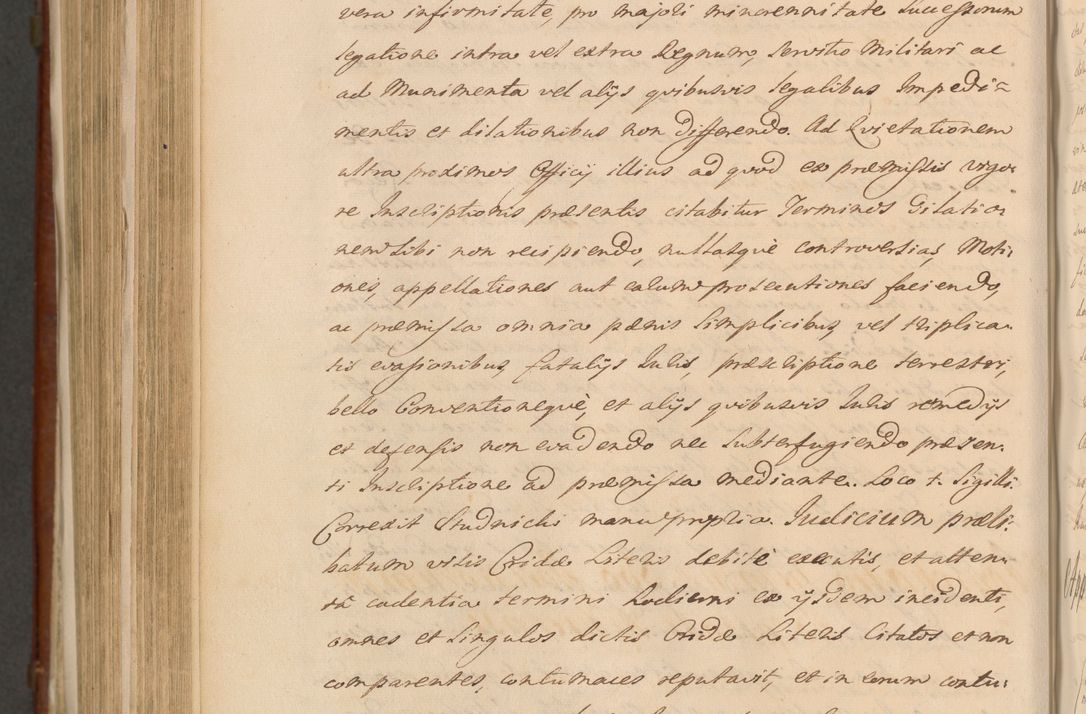 vera infirmitate, pro majori minorennitate Successorum
legatione intra vel extra Regnum, Servitio Militari ac
ad Munimenta vel alijs qvibusvis legalibus Impedi=
mentis et dilationibus non differendo. Ad Qvietationem
ultra proximos Officij illius ad qvod ex præmissis vigo:
re Inscriptionis præsentis citabitur Terminos Dilatio:
nem Sibi non recipiendo, nullasqvè controversias, Moti:
ones, appellationes aut calum: prosecutiones faciendo,
ac præmissa omnia pænis Simplicibus, vel triplica:
tis evasionibus, fatalijs Juris, præscriptione terrestri,
bello Conventioneqvè, et alijs qvibusvis Juris remedijs
et defensis non evadendo nec Subterfugiendo præsen:
ti Inscriptione ad præmissa mediante. Loco †. Sigilli.
Correxit Studnicki manu propria. Judicium præli:
batum visis Cridæ Literis debitè executis, et atten:
tâ cadentia termini hodierni ex ijsdem incidenti,
omnes et Singulos dictis Cridæ Literis Citatos et non
comparentes, contumaces reputavit, et in eorum contu: